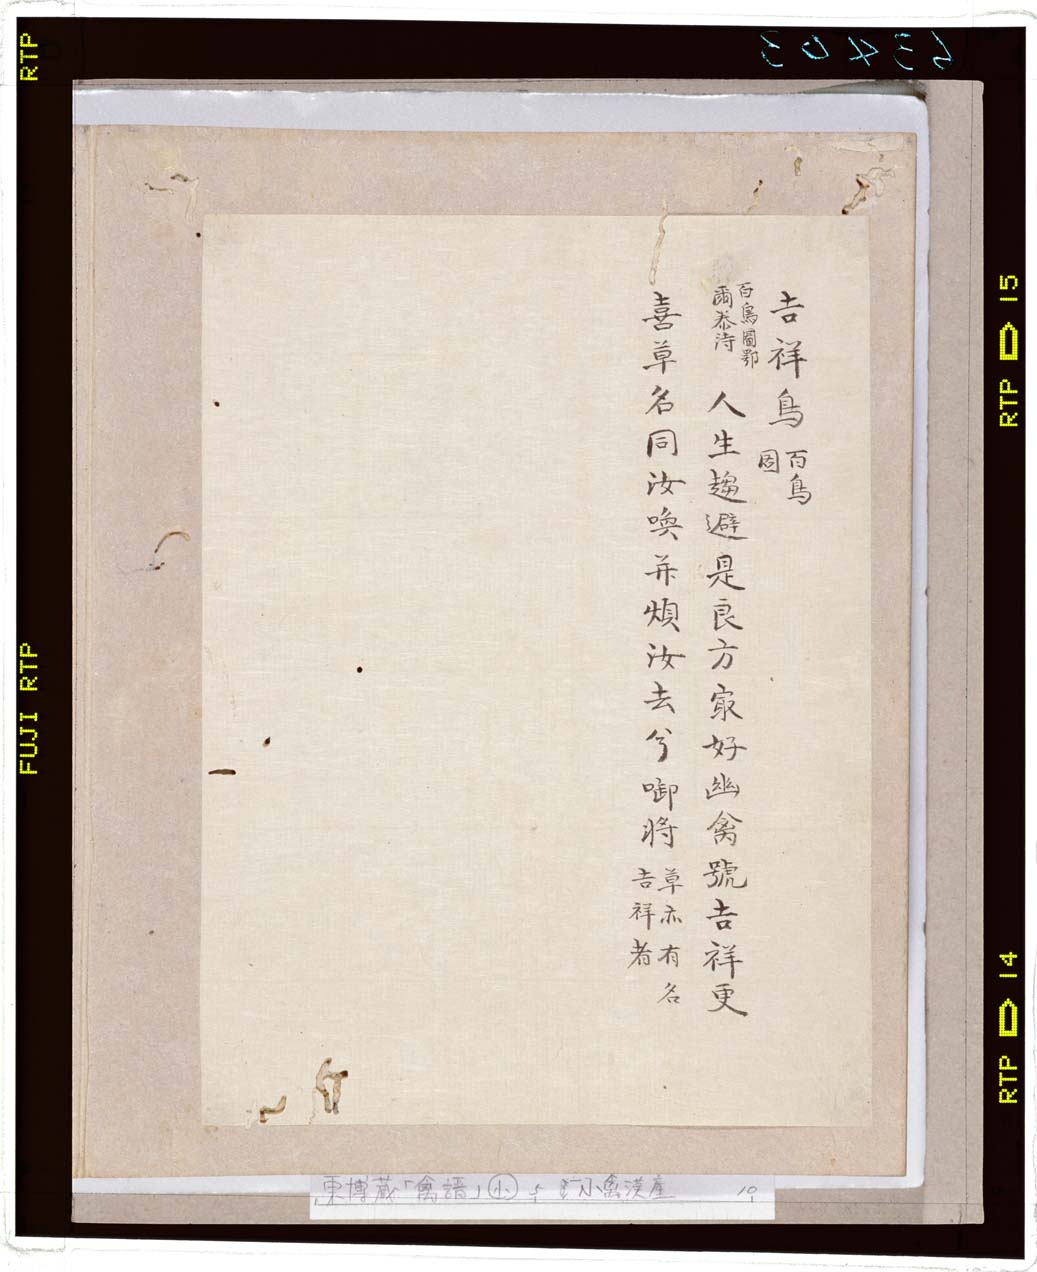 吉祥鳥 百鳥
圖
百鳥圖鄂
爾泰詩
人生趨避是良方㝡好幽禽號吉祥更
喜草名同汝喚并煩汝去兮啣將 草亦有名
吉祥者
RTP
FUJI RTP
RTP 15
RTP 14
63403
東博蔵「禽譜」小
小禽漢産
10